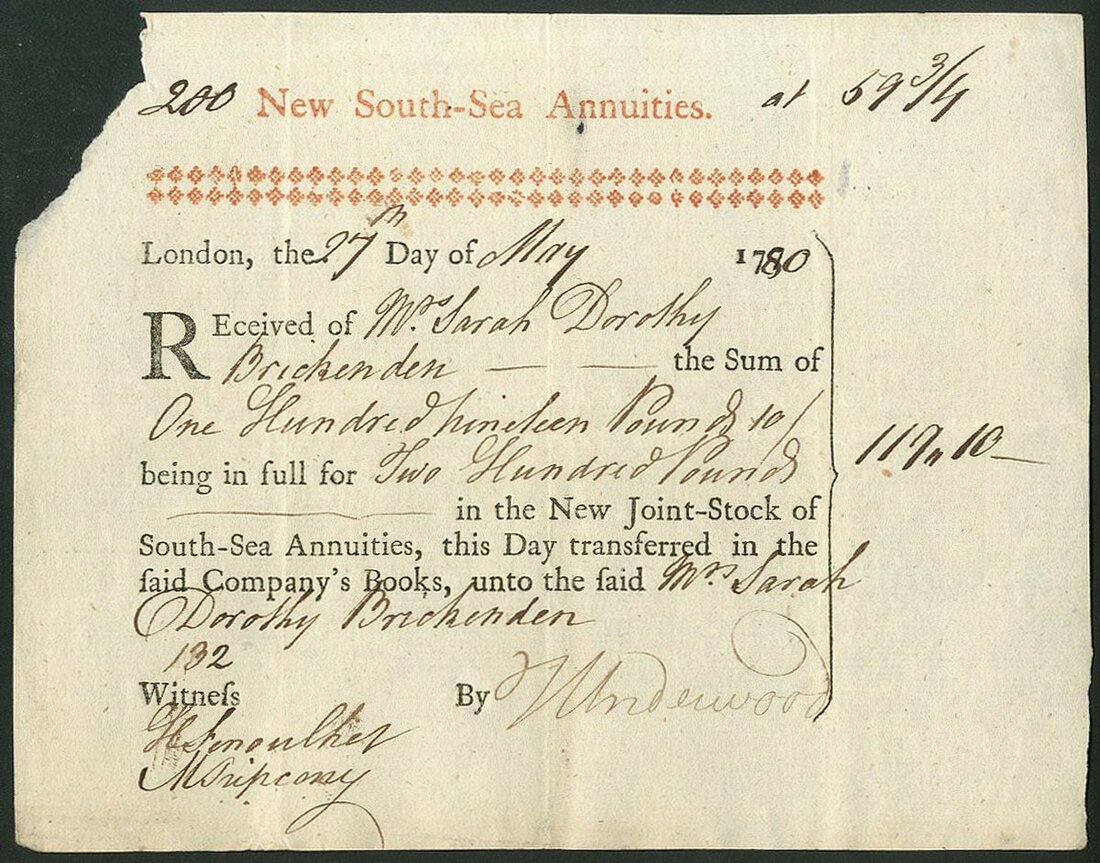 200 New South-Sea Annuities. at 59 3/4
London, the 27th Day of May 1780
REceived of Mrs. Sarah Dorothy
Brickenden — — the Sum of
One Hundred nineteen Pounds 10/
119,, 10 —
being in full for Two Hundred Pounds
in the New Joint-Stock of
South-Sea Annuities, this Day transferred in the
ſaid Company's Books, unto the ſaid Mrs Sarah
Dorothy Brickenden
132
Witneſs By Underwood